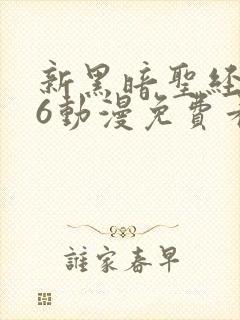 新黑暗聖經
6動漫免費
誰家春早